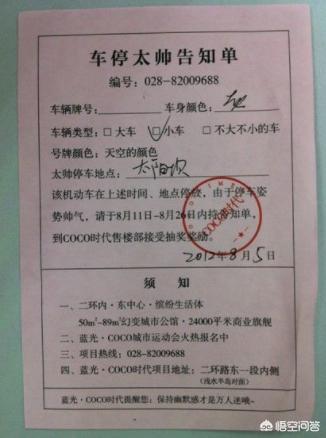 车停太帅告知单
编号：028-82009688
车辆牌号： 车身颜色：
车辆类型：□大车 ☑小车 □不大不小的车
号牌颜色：天空的颜色
太帅停车地点：太阳坝
该机动车在上述时间、地点停放，由于停车姿
势帅气，请于8月11日-8月26日内持告知单，
到COCO时代售楼部接受抽奖奖励。
COCO时代
2012年8月5日
须 知
一、二环内·东中心·缤纷生活体
50m²~89m²幻变城市公馆·24000平米商业旗舰
二、蓝光·COCO城市运动会火热报名中
三、项目热线：028-82009688
四、蓝光·COCO时代项目地址：二环路东一段内侧
（浅水半岛对面）
蓝光·COCO时代提醒您：保持幽默感才是万人迷哦~
悟空问答